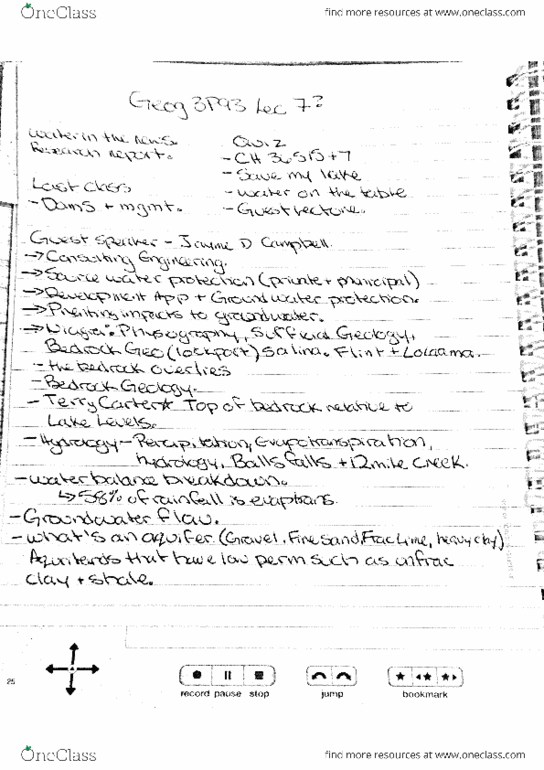 OneClass
find more resources at www.oneclass.com
Geog 3P93 Lec 7?
Water in the news. Quiz
Research report. - CH 3,4,5,15 + 7
- Save my lake
Last class - water on the table
- Dams + mgmt. - Guest lecture.
Guest Speaker - D Campbell.
→ Consulting Engineering.
→ Source water protection (private + municipal)
→ Development App + Ground water protection.
→ impacts to groundwater.
→ Niagra: Physography, Geology,
Bedrock Geo (lockport) Salina. Flint +
- the bedrock overlies
- Bedrock Geology.
- Terry Carter* Top of bedrock relative to
Lake Levels.
- Hydrology - Percipitation, Evapotranspiration,
hydrology, Balls falls + 12 mile creek.
- water balance breakdown.
↳ 58% of rainfall is evaptrans.
- Groundwater flow.
- what's an aquifer (Gravel, Fine sand, Frac Lime, heavy clay)
Aquitards that have low perm such as unfrac
clay + shale.
25
record pause stop jump bookmark
OneClass
find more resources at www.oneclass.com